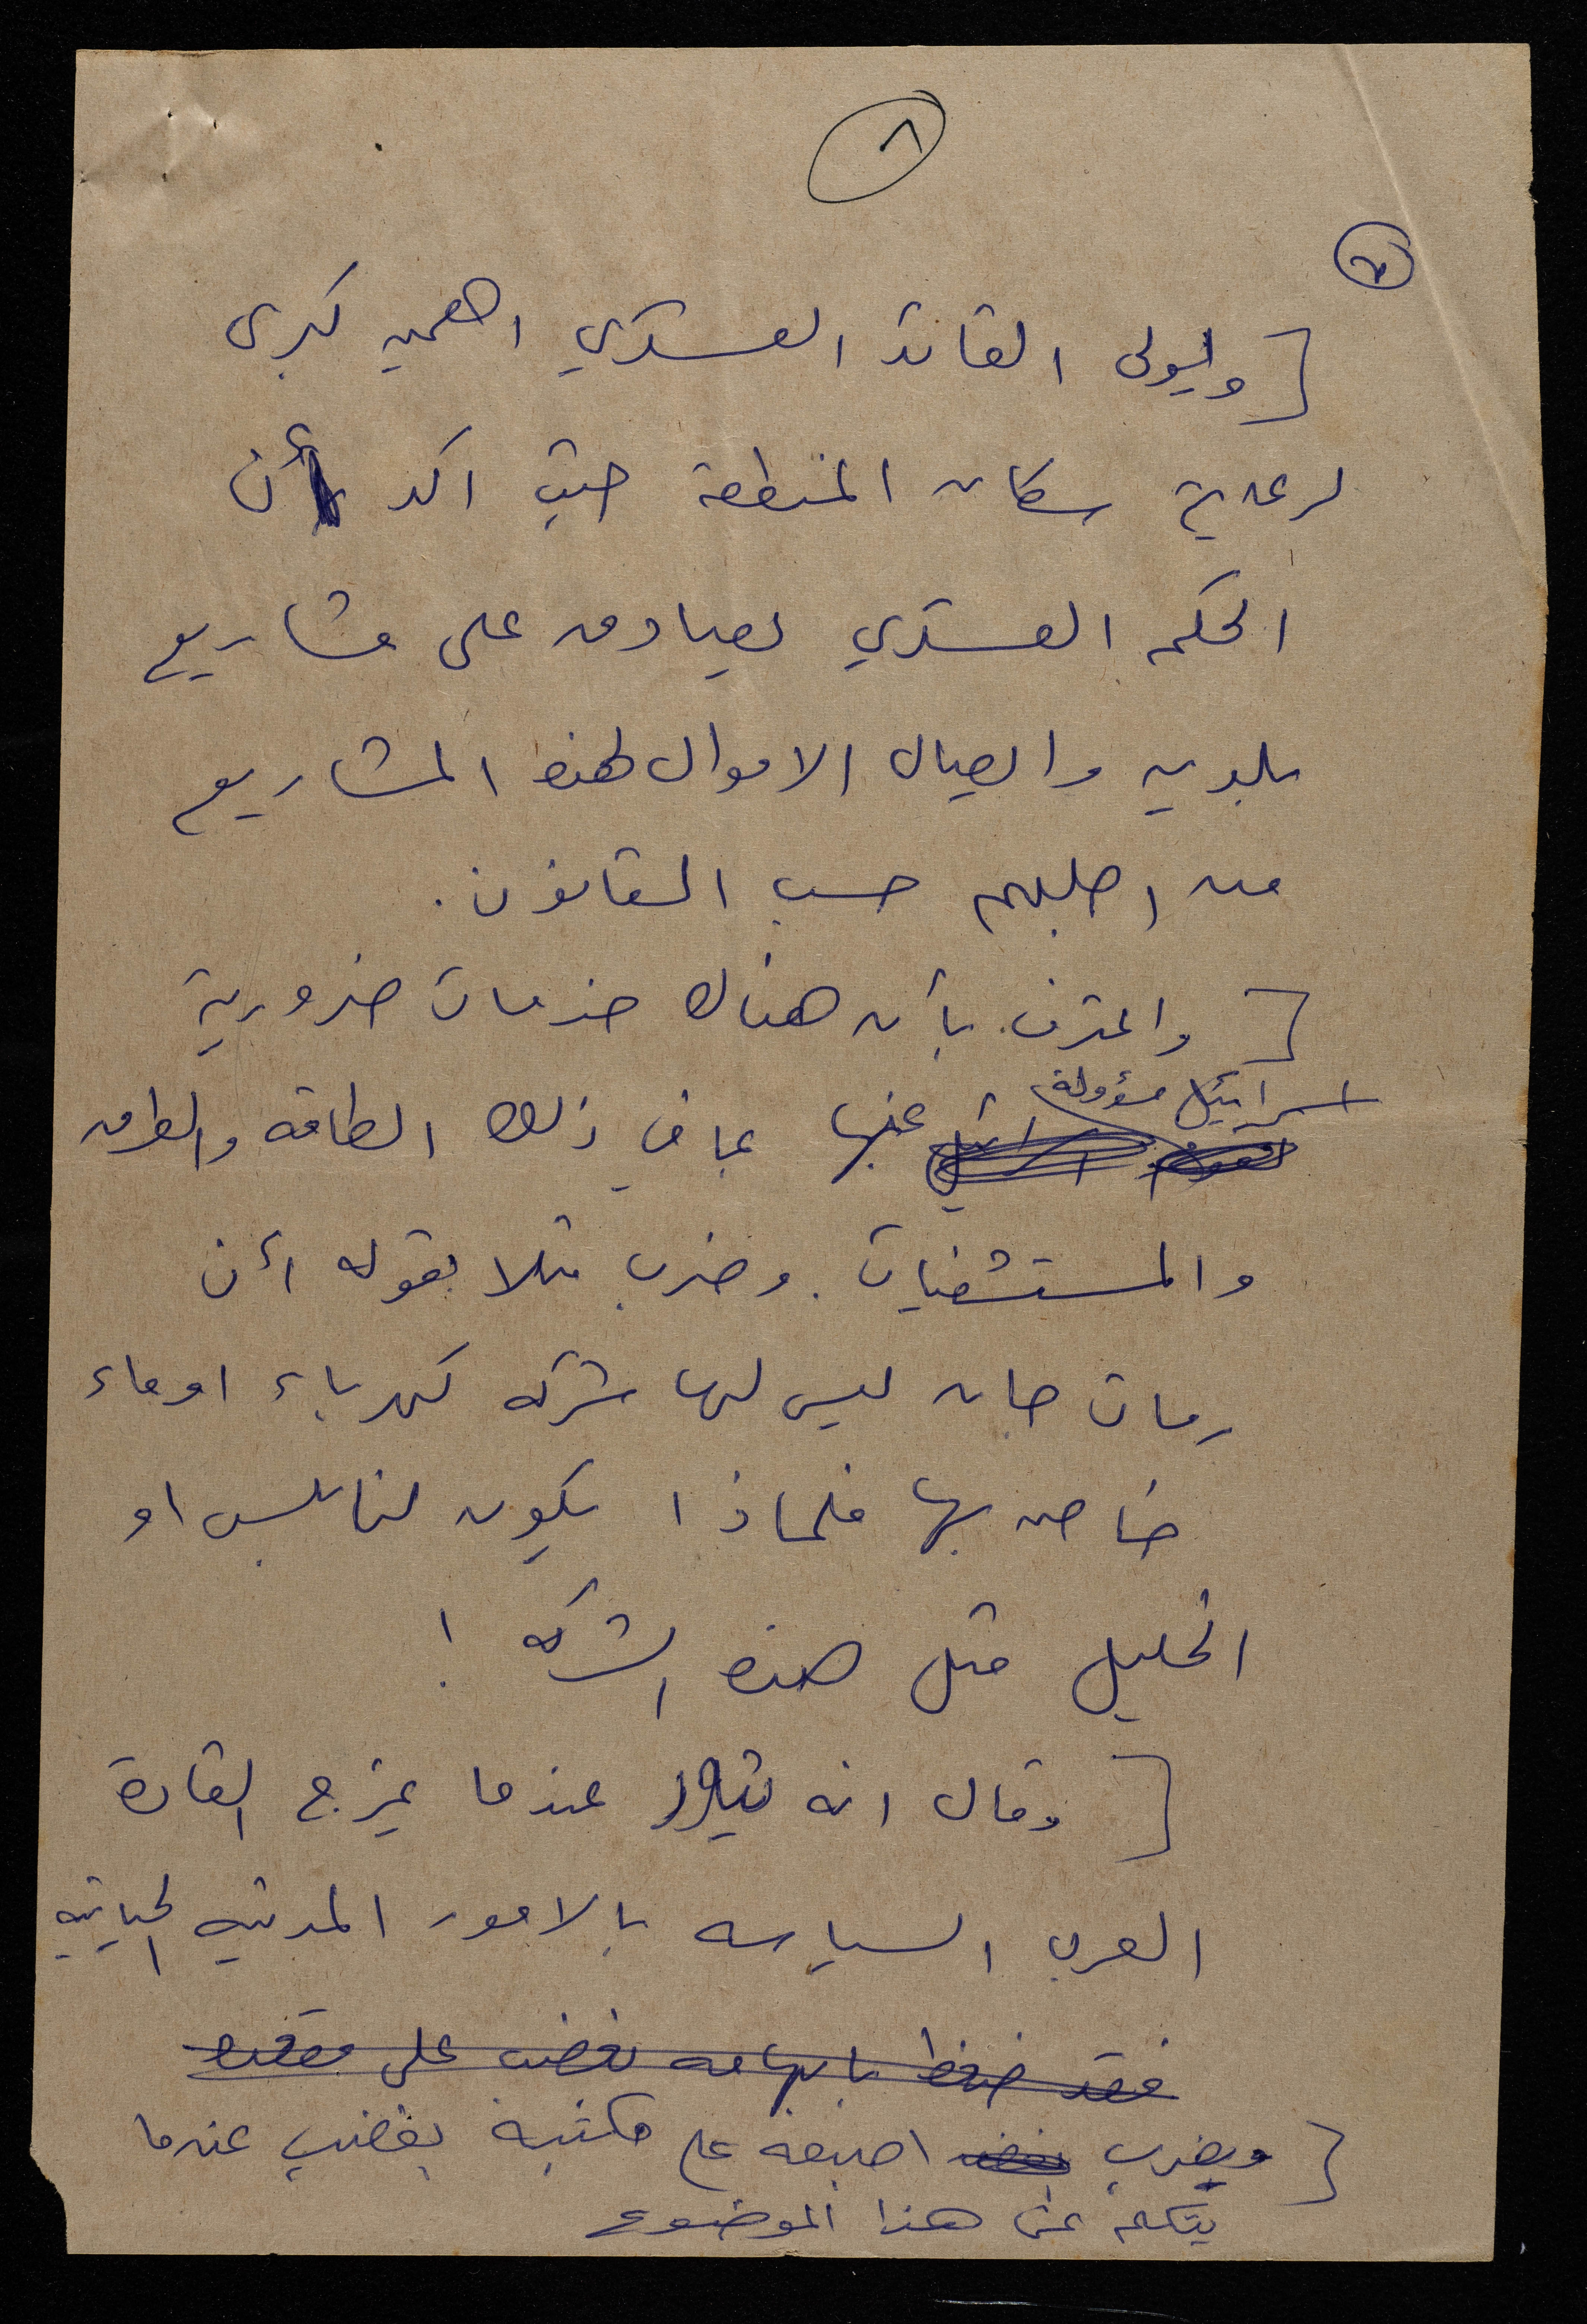 ٨
٧
[ ويولي القائد العسكري اهميه كبرى
لرعاية سكان المنطقة حيث اكد أن
الحكم العسكري يصادق على مشاريع
بلديه وايصال الاموال لهذه المشاريع
من اجلهم حسب القانون .
[ واعترف بأن هناك خدمات ضرورية
اسرائيل مسؤولة
عنها بما في ذلك الطاقه والطرق
والمستشفيات . وضرب مثلا بقوله أن
رمات جان ليس لها شركه كهرباء او ماء
خاصه بها فلماذا يكون لنابلس او
الخليل مثل هذه الشركه !
[ وقال انه يثور عندما يمزج القادة
العرب السياسه بالامور المدنيه الحياتيه
فقد ضغط بابهامه بغضب على مقعده
[ ويضرب اصبعه على مكتبه بغضب عندما
يتكلم عن هذا الموضوع